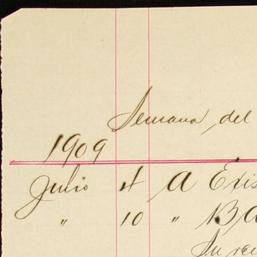 Semana del
1909
Julio 4 A Exis
" 10 " Ba
Su re